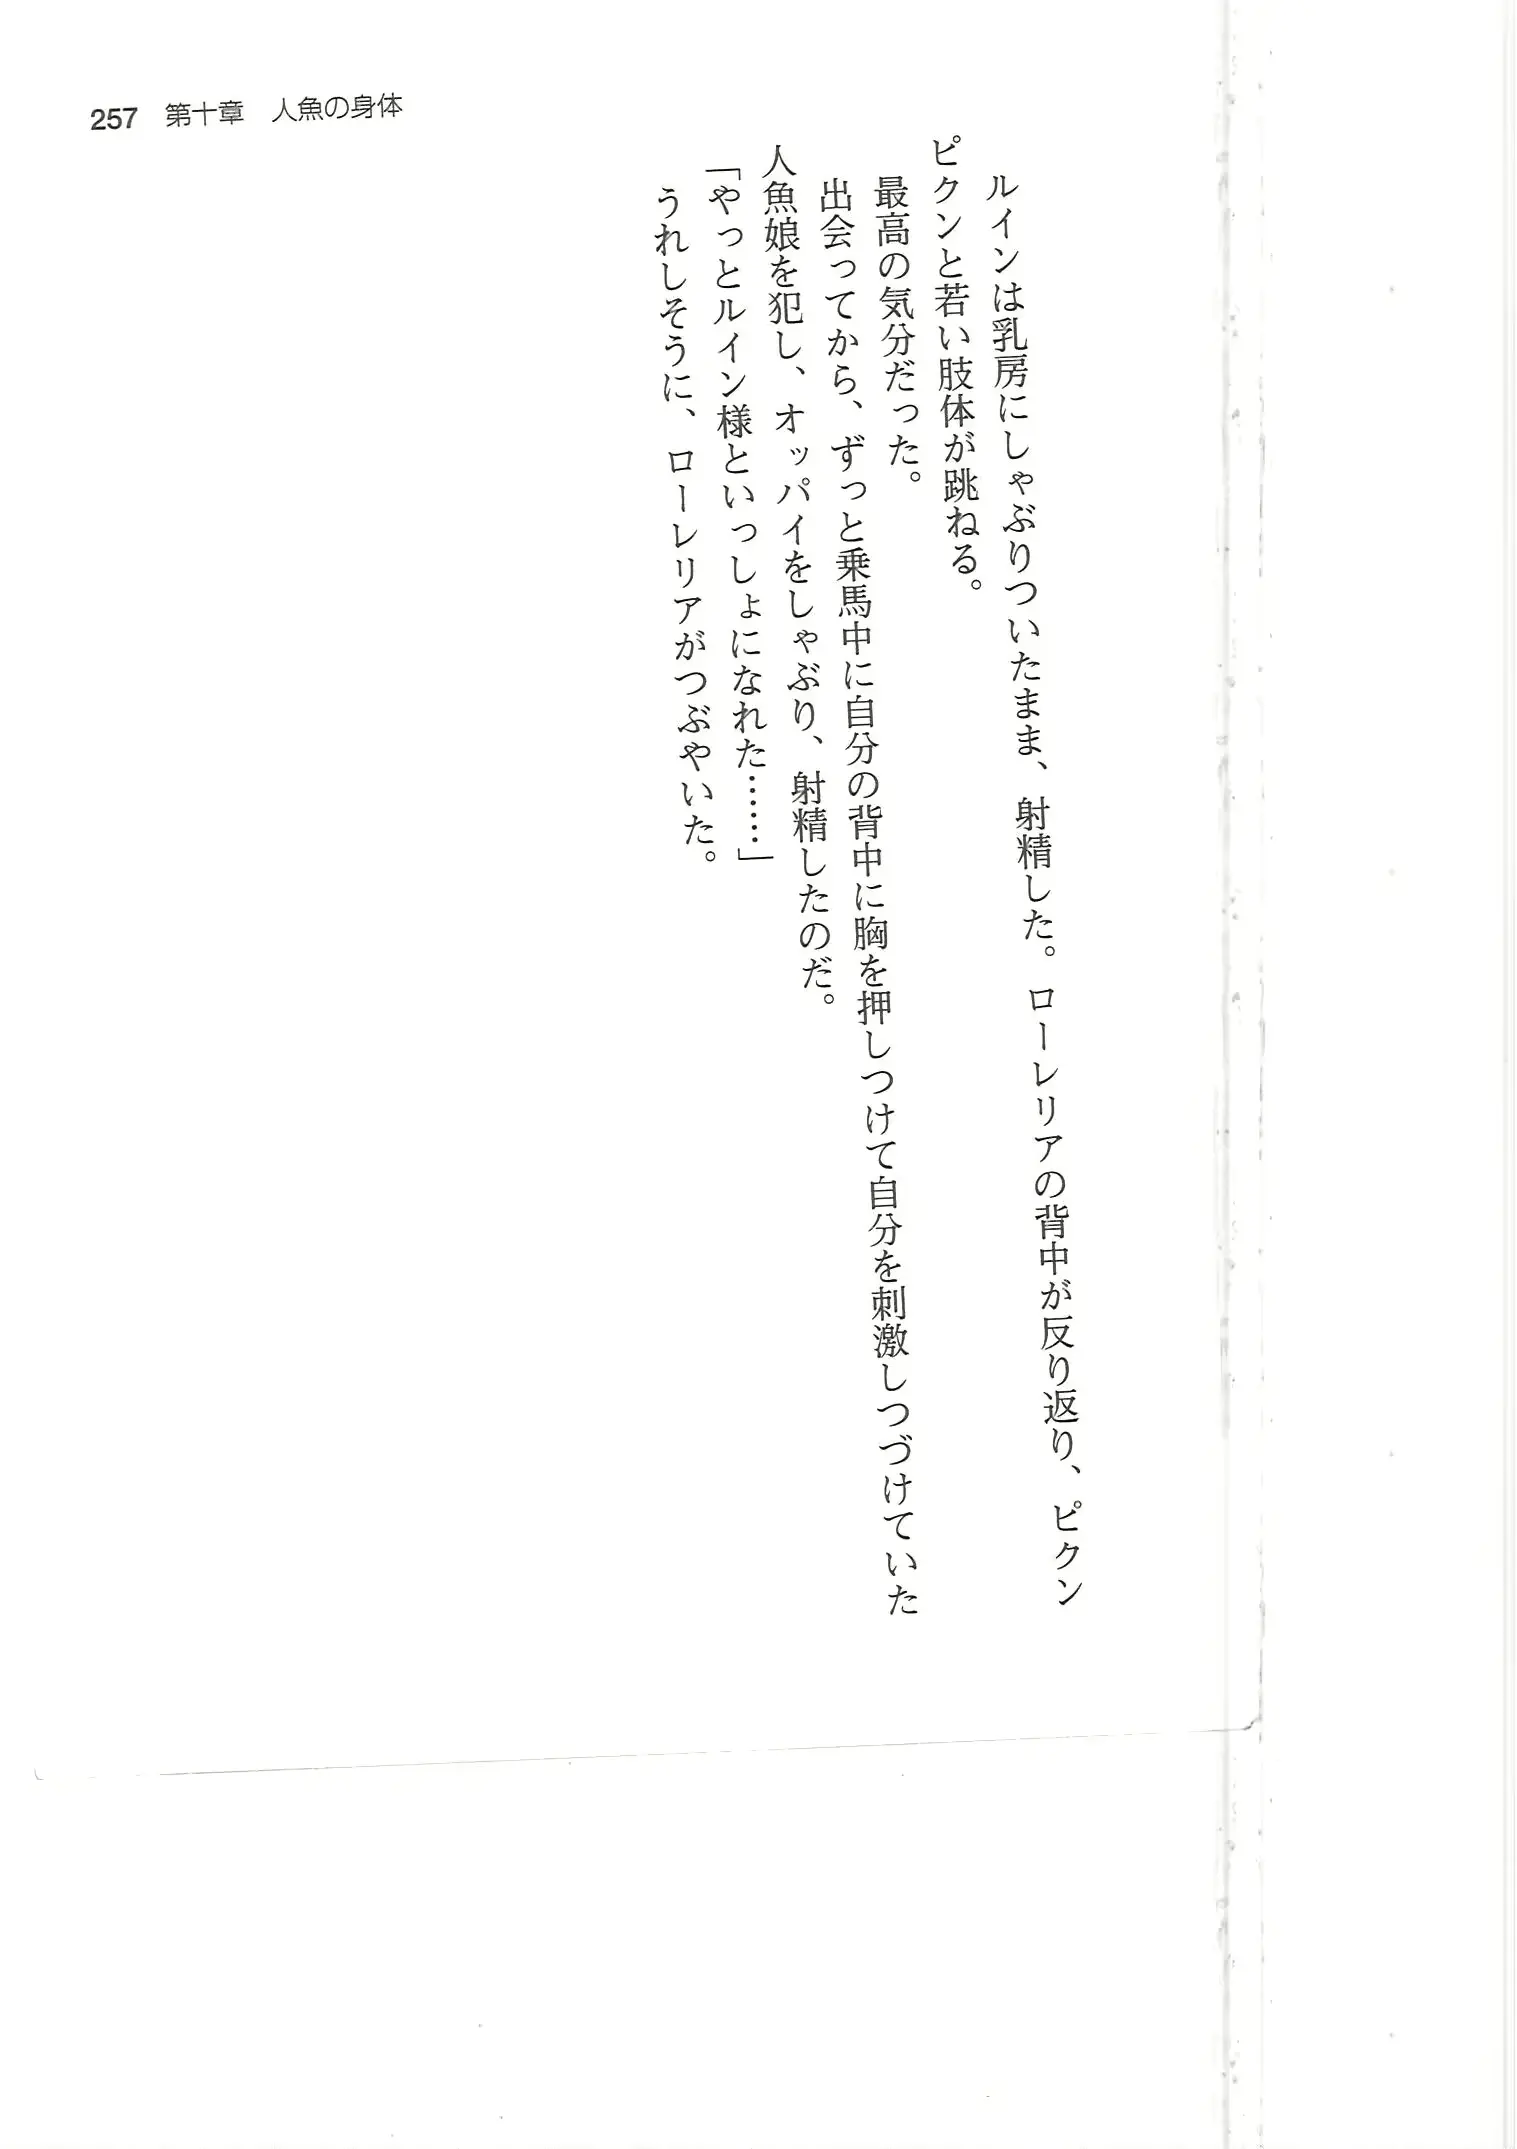 257　第十章　人魚の身体
ルインは乳房にしゃぶりついたまま、射精した。ローレリアの背中が反り返り、ピクン
ピクンと若い肢体が跳ねる。
最高の気分だった。
出会ってから、ずっと乗馬中に自分の背中に胸を押しつけて自分を刺激しつづけていた
人魚娘を犯し、オッパイをしゃぶり、射精したのだ。
「やっとルイン様といっしょになれた……」
うれしそうに、ローレリアがつぶやいた。